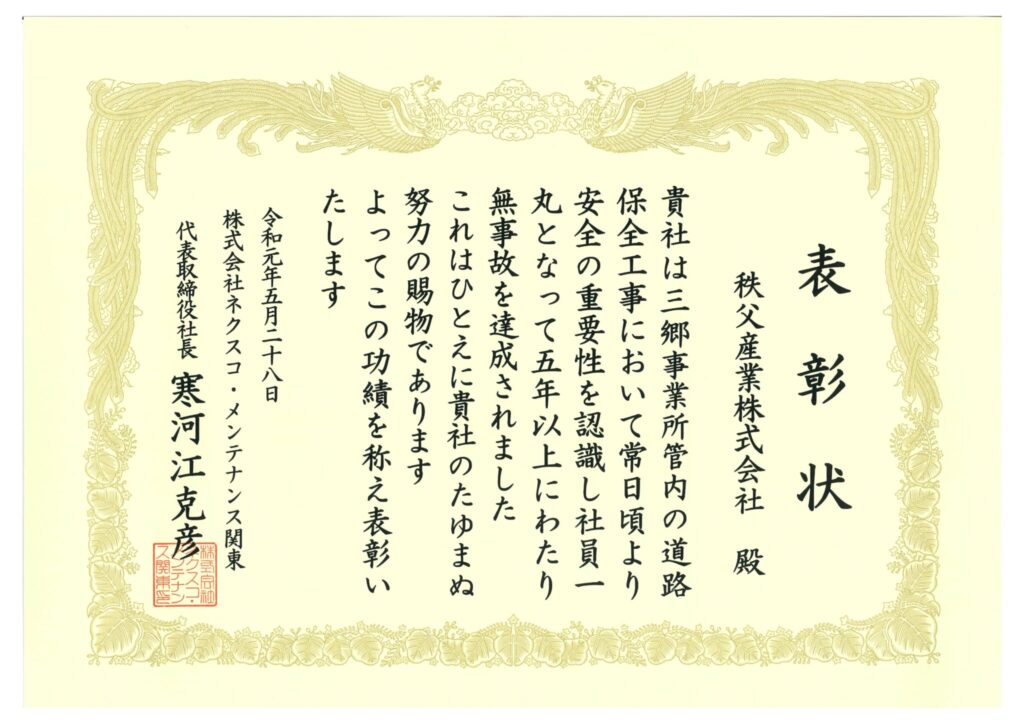 表彰状
秩父産業株式会社 殿
貴社は三郷事業所管内の道路
保全工事において常日頃より
安全の重要性を認識し社員一
丸となって五年以上にわたり
無事故を達成されました
これはひとえに貴社のたゆまぬ
努力の賜物であります
よってこの功績を称え表彰い
たします
令和元年五月二十八日
株式会社ネクスコ・メンテナンス関東
代表取締役社長 寒河江克彦
株式会社
ネクスコ・
メンテナン
ス関東印